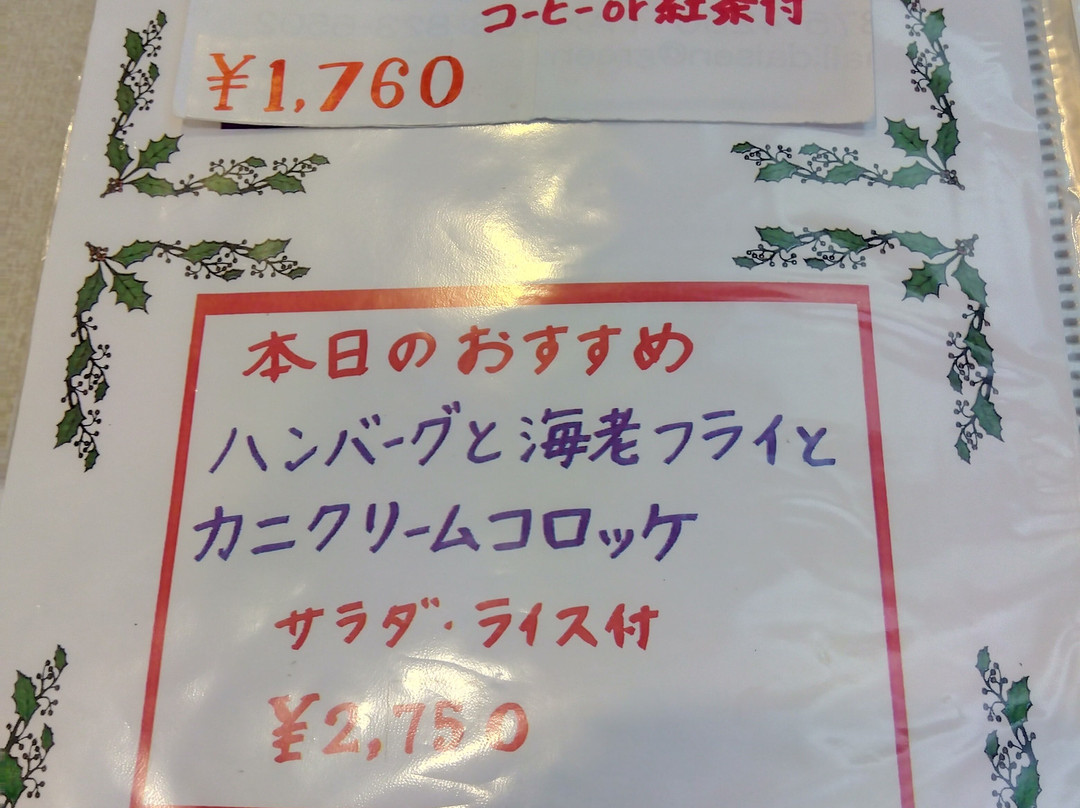 コーヒーor紅茶付
¥1,760
本日のおすすめ
ハンバーグと海老フライと
カニクリームコロッケ
サラダ・ライス付
¥2,750